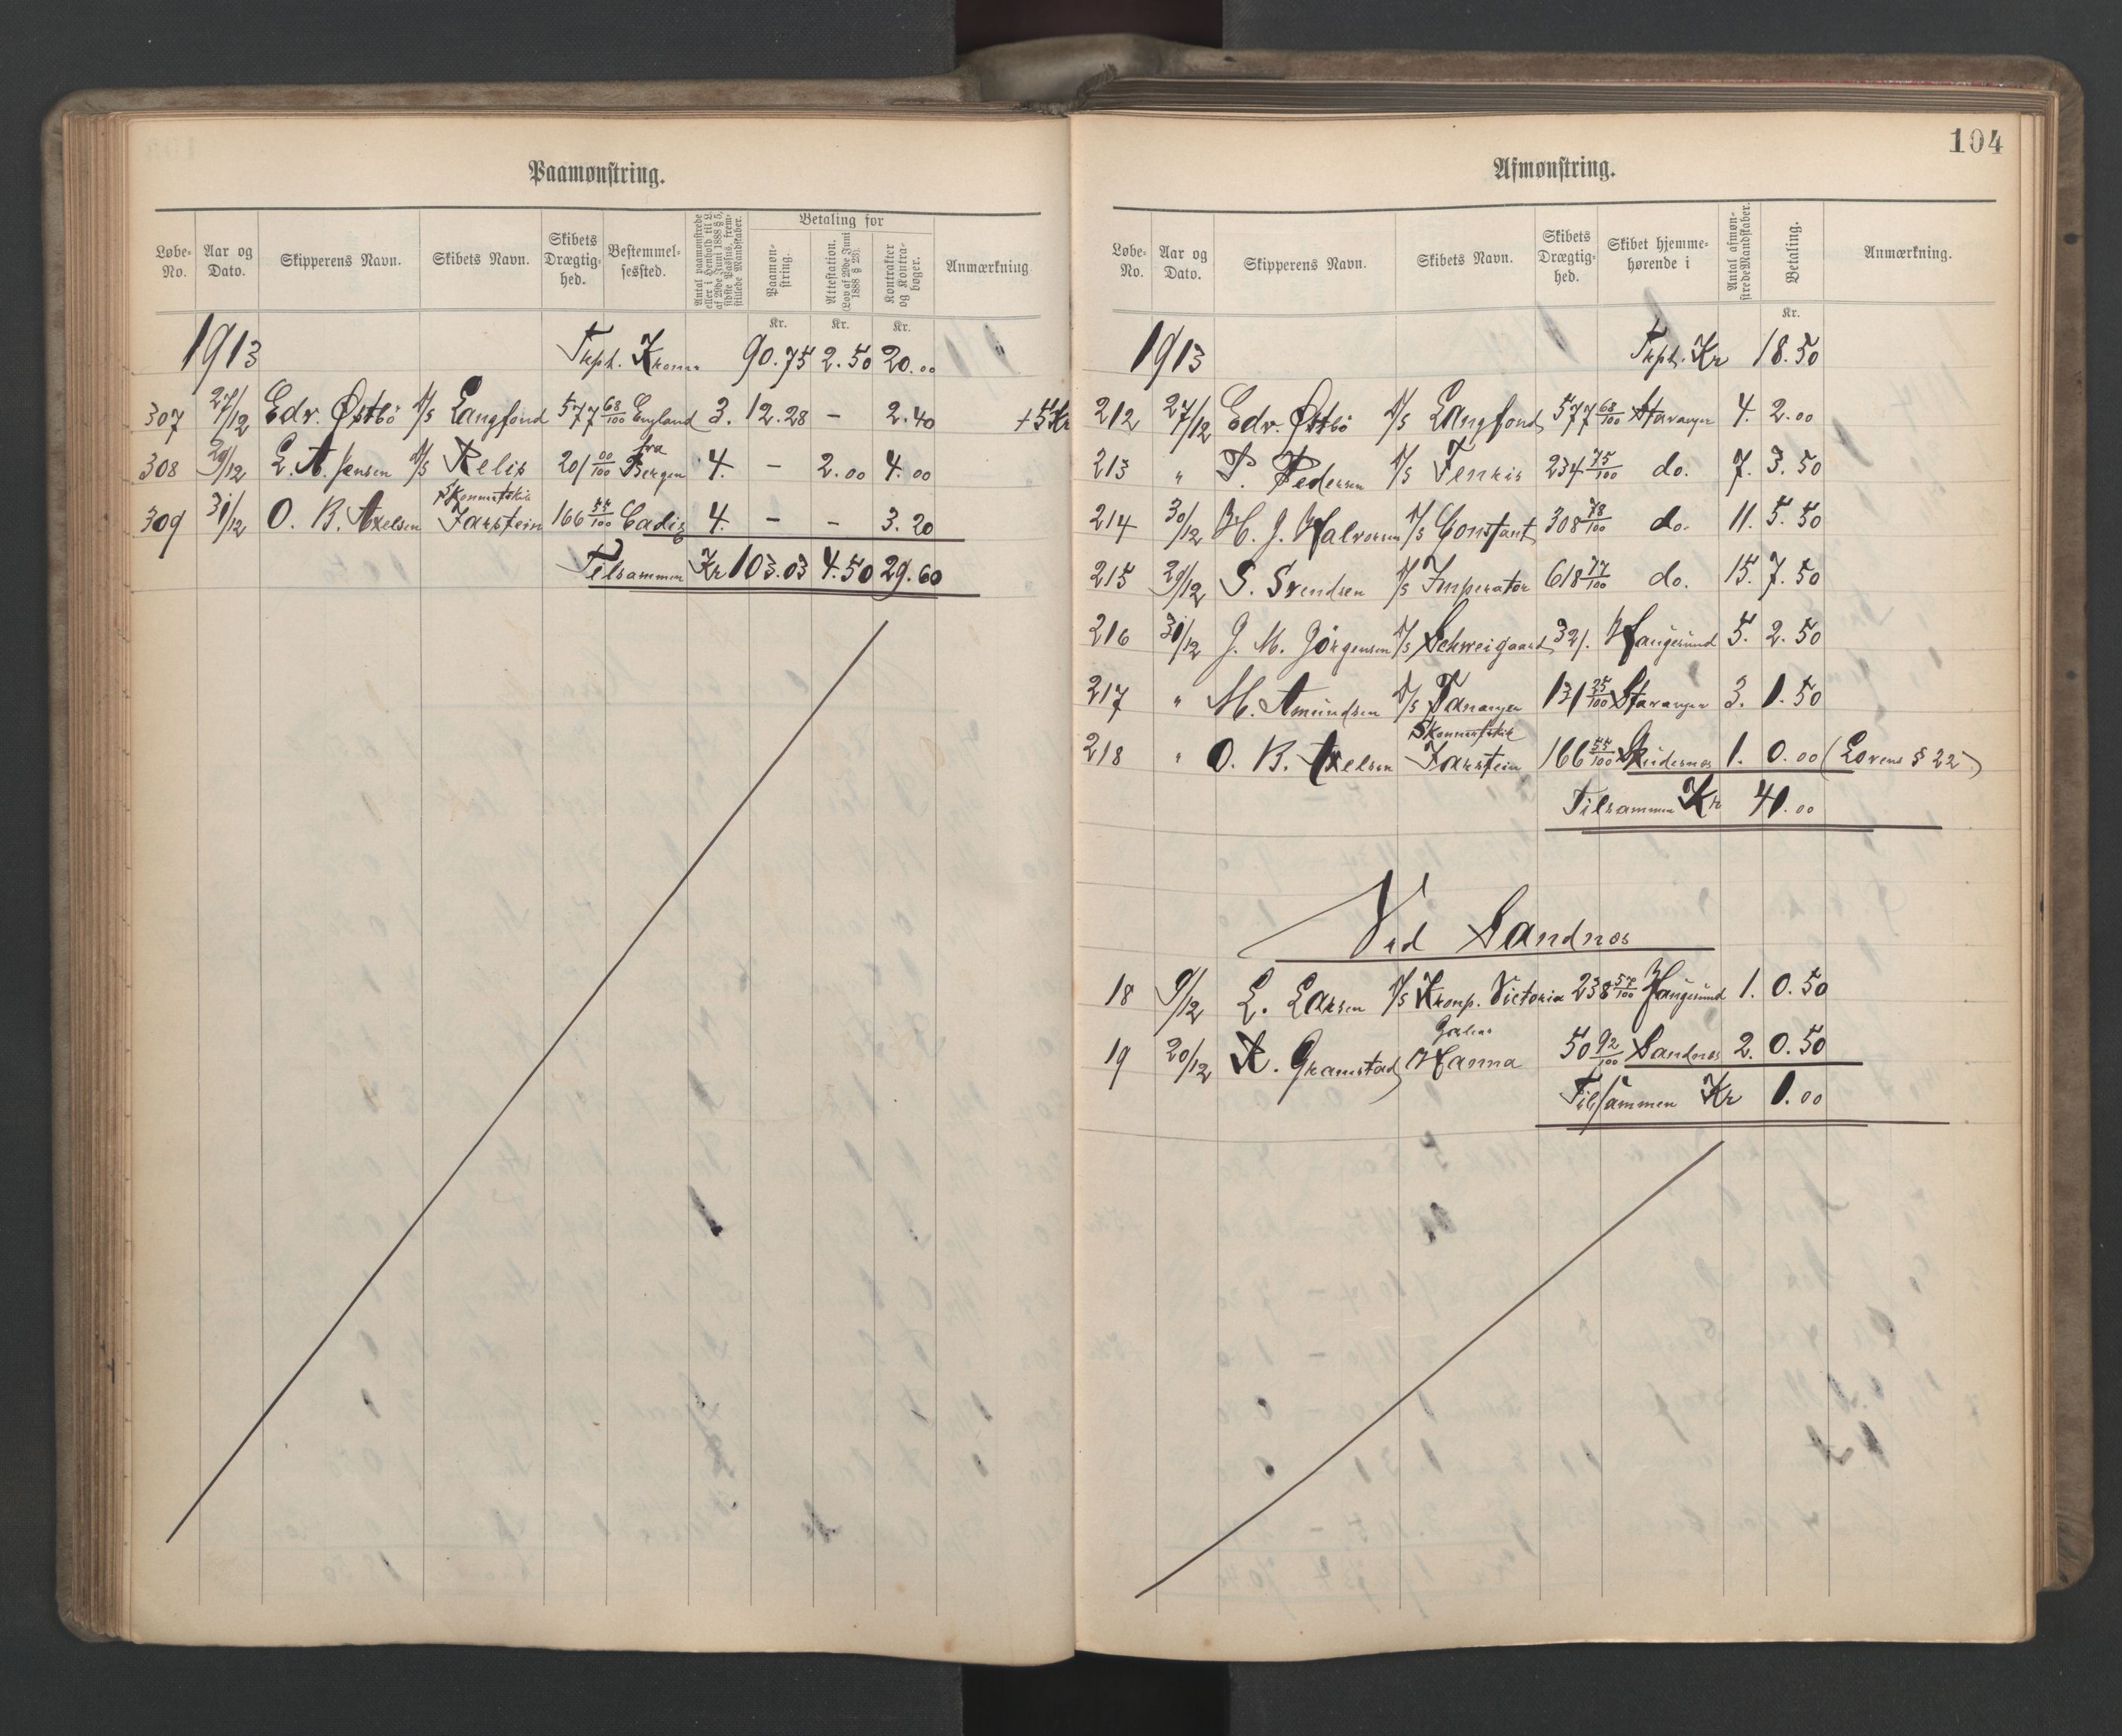 Paamønstring.
Løbe-No. Aar og Dato. Skipperens Navn. Skibets Navn. Skibets Drægtighed. Bestemmelsessted. Antal paamønstrede eller i Henhold til L. af 29de Juni 1888 § 5, sidste Passus, fremstillede Mandskaber. Betaling for Paamønstring. Attestation. (Lov af 29de Juni 1888 § 28). Kontrakter og Kontrabøger. Anmærkning
Kr. Kr. Kr.
1913 Trpt. Kroner 90.75 2.50 20.00
307 27/12 Edv. Østbö D/S Langfond 577 68/100 England 3. 12.28 – 2.40 + 5 Kr
308 29/12 L. A. Jensen D/S Relis 201 00/100 fra Bergen 4. – 2.00 4.00
309 31/12 O. B. Axelsen Skonnertskib Jarstein 166 55/100 Cadiz 4. – – 3.20
Tilsammen Kr 103.03 4.50 29.60
104
Afmønstring.
Løbe-No. Aar og Dato. Skipperens Navn. Skibets Navn. Skibets Drægtighed. Skibet hjemmehørende i Antal afmønstrede Mandskaber. Betaling. Anmærkning.
Kr.
1913 Trpt. Kr 18.50
212 27/12 Edv. Østbö D/S Langfond 577 68/100 Stavanger 4. 2.00
213 " P. Pedersen D/S Fenris 234 75/100 do. 7. 3.50
214 30/12 H. J. Halvorsen D/S Constant 308 78/100 do. 11. 5.50
215 29/12 S. Svendsen D/S Imperator 618 77/100 do. 15. 7.50
216 31/12 J. M. Jörgensen D/S Schweigaard 321. Haugesund 5. 2.50
217 " M. Amundsen D/S Tananger 131 25/100 Stavanger 3. 1.50
218 " O. B. Axelsen Skonnertskib Jarstein 166 55/100 Skudesnes 1. 0.00 (Lovens § 22)
Tilsammen Kr 41.00
Ved Sandnes
18 9/12 L. Larsen D/S Kronp. Victoria 238 57/100 Haugesund 1. 0.50
19 20/12 R. Gramstad Galeas Hanna 50 92/100 Sandnes 2. 0.50
Tilsammen Kr 1.00